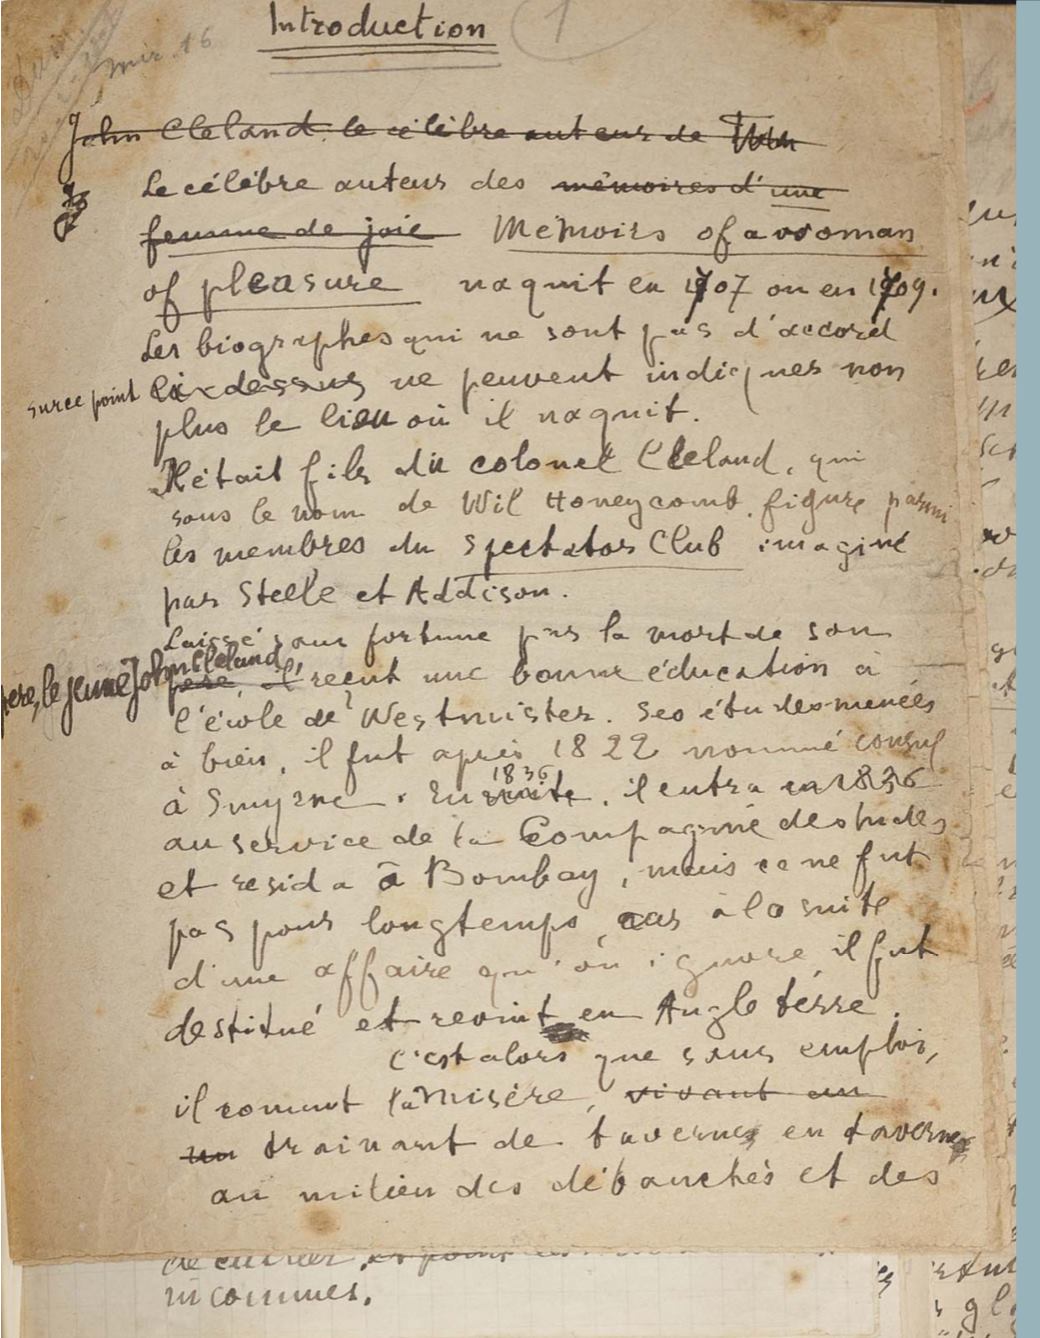 Introduction 1
mir. 16
John Cleland le célèbre auteur de
Le célèbre auteur des mémoires d'une
femme de joie Memoirs of a woman
of pleasure naquit en 1707 ou en 1709.
Les biographes qui ne sont pas d'accord
sur ce point là-dessus ne peuvent indiquer non
plus le lieu où il naquit.
Il était fils du colonel Cleland, qui
sous le nom de Wil Honeycomb, figure parmi
les membres du Spectator Club imaginé
par Steele et Addison.
Laissé sans fortune par la mort de son
père, le jeune John Cleland, père, il reçut une bonne éducation à
l'école de Westmister. Ses études menées
à bien, il fut après 1822 nommé consul
à Smyrne. Ensuite 1836, il entra en 1836
au service de la Compagnie des Indes
et resida à Bombay, mais ce ne fut
pas pour longtemps, car à la suite
d'une affaire qu'on ignore, il fut
destitué et revint en Angleterre.
C'est alors que sans emploi,
il connut la misère, vivant en
un trainant de taverne en taverne
au milieu des débauchés et des
inconnues.